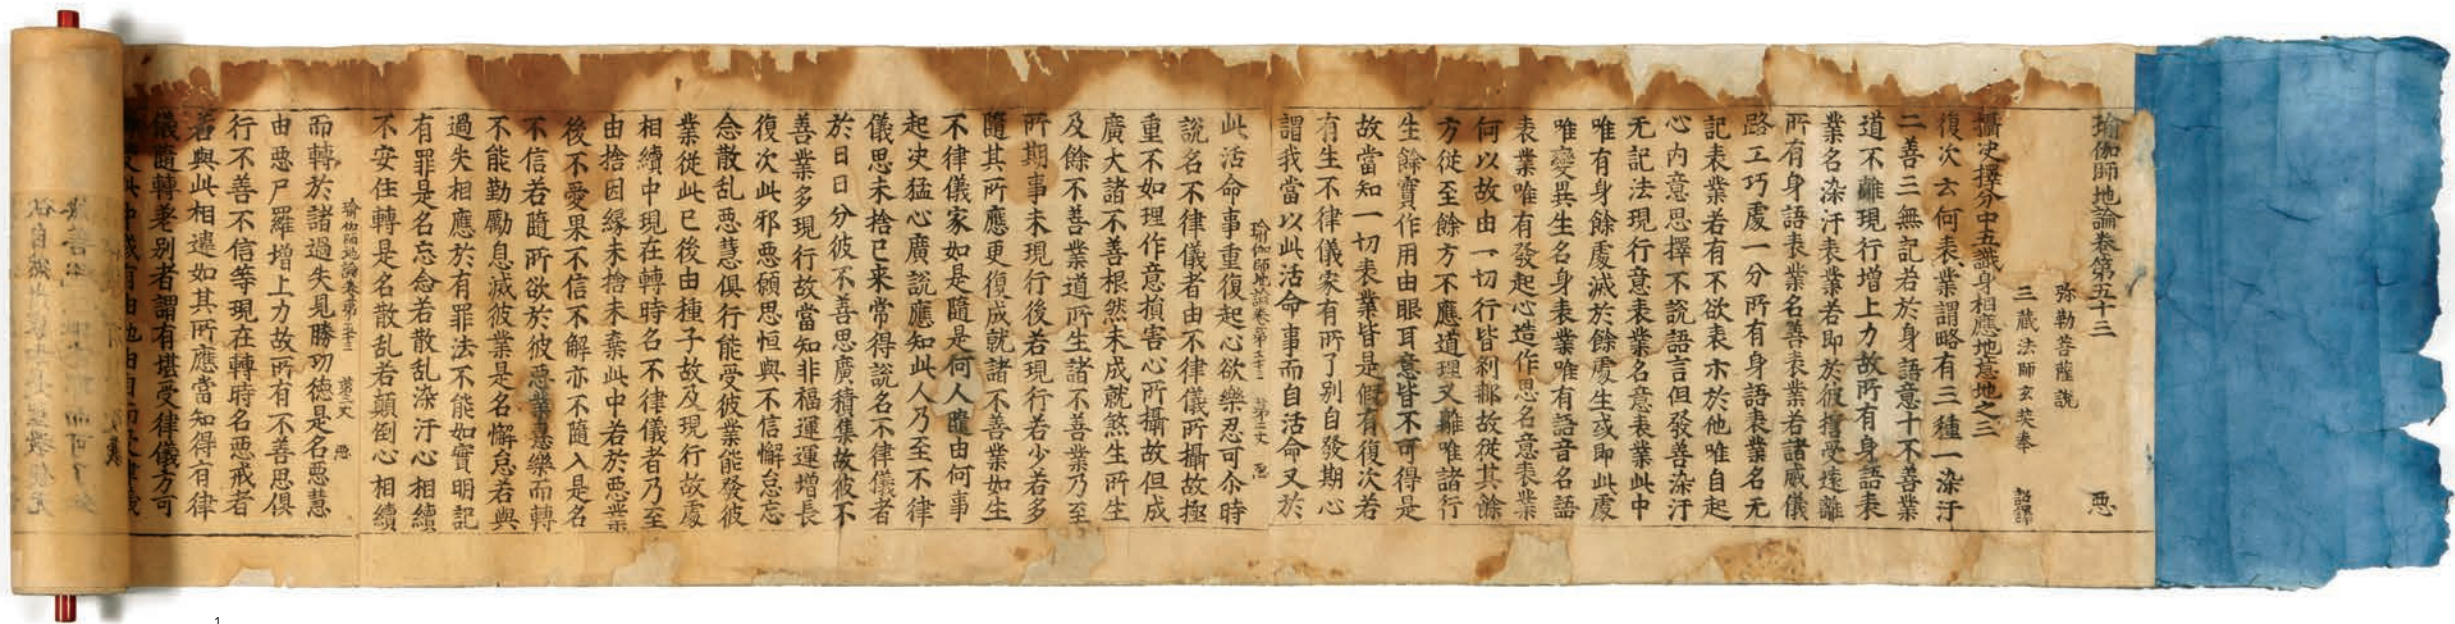 瑜伽師地論卷第五十三 惡
弥勒菩薩說
三藏法師玄奘奉 詔譯
攝决擇分中五識身相應地意地之三
復次云何表業謂略有三種一染汙
二善三無記若於身語意十不善業
道不離現行增上力故所有身語表
業名染汙表業若即於彼擅受遠離
所有身語表業名善表業若諸威儀
路工巧處一分所有身語表業名无
記表業若有不欲表示於他唯自起
心内意思擇不說語言但發善染汙
无記法現行意表業名意表業此中
唯有身餘處滅於餘處生或即此處
唯變異生名身表業唯有語音名語
表業唯有發起心造作思名意表業
何以故由一切行皆剎那故從其餘
方從至餘方不應道理又離唯諸行
生餘實作用由眼耳意皆不可得是
故當知一切表業皆是假有復次若
有生不律儀家有所了别自發期心
謂我當以此活命事而自活命又於
瑜伽師地論卷第五十三 第二丈 惡
此活命事重復起心欲樂忍可尒時
說名不律儀者由不律儀所攝故極
重不如理作意損害心所攝故但成
廣大諸不善根然未成就煞生所生
及餘不善業道所生諸不善業乃至
所期事未現行後若現行若少若多
隨其所應更復成就諸不善業如生
不律儀家如是隨是何人隨由何事
起决猛心廣說應知此人乃至不律
儀思未捨已来常得說名不律儀者
於日日分彼不善思廣積集故彼不
善業多現行故當知非福運運增長
復次此邪惡願思恒與不信懈怠忘
念散乱惡慧俱行能受彼業能發彼
業從此已後由種子故及現行故處
相續中現在轉時名不律儀者乃至
由捨因緣未捨未棄此中若於惡業
後不愛果不信不解亦不隨入是名
不信若隨所欲於彼惡業意樂而轉
不能勤勵息滅彼業是名懈怠若與
過失相應於有罪法不能如實明記
有罪是名忘念若散乱染汙心相續
不安住轉是名散乱若顛倒心相續
瑜伽師地論卷第五十三 第三丈 惡
而轉於諸過失見勝功德是名惡慧
由惡尸羅增上力故所有不善思俱
行不善不信等現在轉時名惡戒者
若與此相違如其所應當知得有律
儀隨轉差别者謂有堪受律儀方可